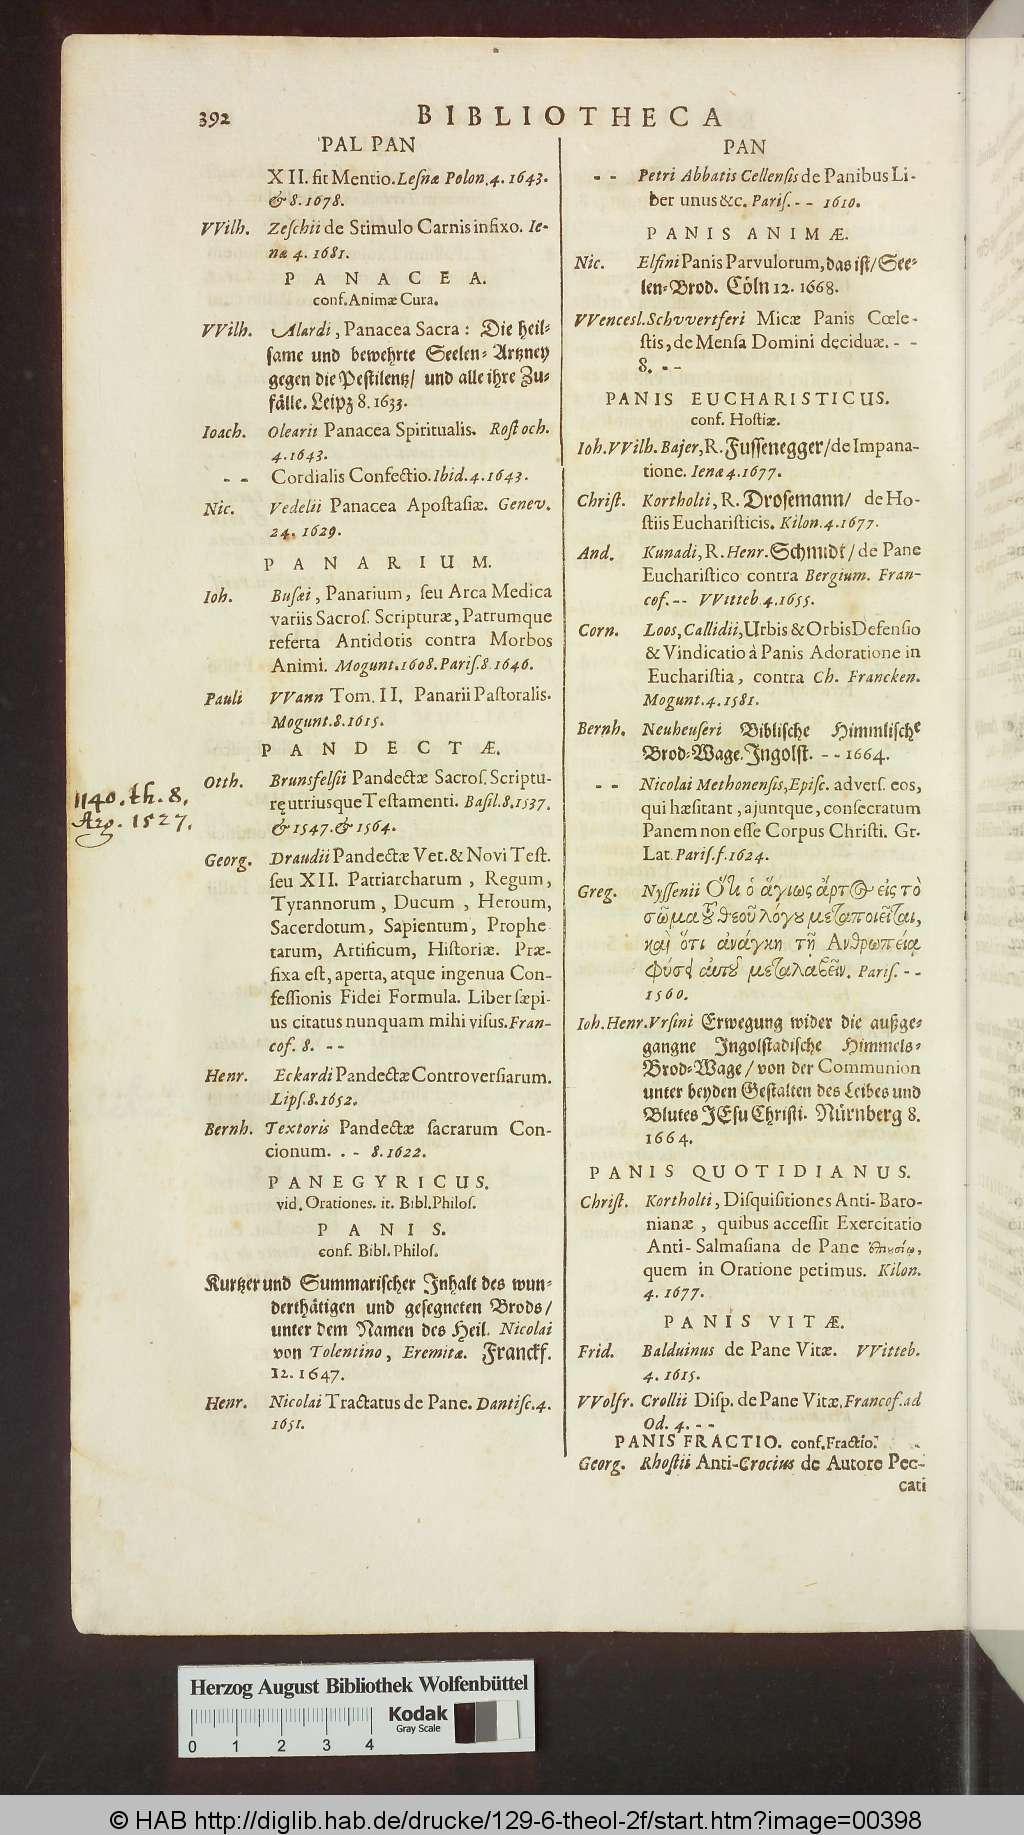 392 BIBLIOTHECA
PAL PAN
XII. fit Mentio. Lesnæ Polon. 4. 1643.
& 8. 1678.
VVilh. Zeschii de Stimulo Carnis infixo. Ie-
næ 4. 1681.
PANACEA.
conf. Animæ Cura.
VVilh. Alardi, Panacea Sacra: Die heil-
same und bewehrte Seelen-Artzney
gegen die Pestilentz/ und alle ihre Zu-
fälle. Leipz 8. 1633.
Ioach. Olearii Panacea Spiritualis. Rostoch.
4. 1643.
- - Cordialis Confectio. Ibid. 4. 1643.
Nic. Vedelii Panacea Apostasiæ. Genev.
24. 1629.
PANARIUM.
Ioh. Busæi, Panarium, seu Arca Medica
variis Sacros. Scripturæ, Patrumque
referta Antidotis contra Morbos
Animi. Mogunt. 1608. Paris. 8. 1646.
Pauli VVann Tom. II. Panarii Pastoralis.
Mogunt. 8. 1615.
PANDECTÆ.
Otth. Brunsfelsii Pandectæ Sacros. Scriptu-
rę utriusque Testamenti. Basil. 8. 1537.
& 1547. & 1564.
1140. th. 8.
Arg. 1527.
Georg. Draudii Pandectæ Vet. & Novi Test.
seu XII. Patriarcharum, Regum,
Tyrannorum, Ducum, Heroum,
Sacerdotum, Sapientum, Prophe
tarum, Artificum, Historiæ. Præ-
fixa est, aperta, atque ingenua Con-
fessionis Fidei Formula. Liber sæpi-
us citatus nunquam mihi visus. Fran-
cof. 8. - -
Henr. Eckardi Pandectæ Controversiarum.
Lips. 8. 1652.
Bernh. Textoris Pandectæ sacrarum Con-
cionum. . - 8. 1622.
PANEGYRICUS.
vid. Orationes. it. Bibl. Philos.
PANIS.
conf. Bibl. Philos.
Kurtzer und Summarischer Inhalt des wun-
derthätigen und gesegneten Brods/
unter dem Namen des Heil. Nicolai
von Tolentino, Eremitæ. Franckf.
12. 1647.
Henr. Nicolai Tractatus de Pane. Dantisc. 4.
1651.
PAN
- - Petri Abbatis Cellensis de Panibus Li-
ber unus &c. Paris. - - 1610.
PANIS ANIMÆ.
Nic. Elfini Panis Parvulorum, das ist/ See-
len-Brod. Cöln 12. 1668.
VVencesl. Schvvertferi Micæ Panis Cœle-
stis, de Mensa Domini deciduæ. - -
8. - -
PANIS EUCHARISTICUS.
conf. Hostiæ.
Ioh. VVilh. Bajer, R. Fussenegger/ de Impana-
tione. Ienæ 4. 1677.
Christ. Kortholti, R. Drosemann/ de Ho-
stiis Eucharisticis. Kilon. 4. 1677.
And. Kunadi, R. Henr. Schmidt/ de Pane
Eucharistico contra Bergium. Fran-
cof. - - VVitteb. 4. 1655.
Corn. Loos, Callidii, Urbis & Orbis Defensio
& Vindicatio à Panis Adoratione in
Eucharistia, contra Ch. Francken.
Mogunt. 4. 1581.
Bernh. Neuheuseri Biblische Himmlische
Brod-Wage. Ingolst. - - 1664.
- - Nicolai Methonensis, Episc. advers. eos,
qui hæsitant, ajuntque, consecratum
Panem non esse Corpus Christi. Gr.
Lat. Paris. f. 1624.
Greg. Nyssenii Ὅτι ὁ ἅγιως ἄρτος εἰς τὸ
σῶμα τȣ̃ θεοῦ λόγȣ μεταποιεῖται,
καὶ ὅτι ἀνάγκη τῇ Ἀνθρωπείᾳ
φύσῃ αὐτοῦ μεταλαβεῖν. Paris. - -
1560.
Ioh. Henr. Ursini Erwegung wider die außge-
gangne Ingolstadische Himmels-
Brod-Wage/ von der Communion
unter beyden Gestalten des Leibes und
Blutes JEsu Christi. Nürnberg 8.
1664.
PANIS QUOTIDIANUS.
Christ. Kortholti, Disquisitiones Anti-Baro-
nianæ, quibus accessit Exercitatio
Anti-Salmasiana de Pane ἐπιουσίῳ,
quem in Oratione petimus. Kilon.
4. 1677.
PANIS VITÆ.
Frid. Balduinus de Pane Vitæ. VVitteb.
4. 1615.
VVolfr. Crollii Disp. de Pane Vitæ. Francof. ad
Od. 4. - -
PANIS FRACTIO. conf. Fractio.
Georg. Rhostii Anti-Crocius de Autore Pec-
cati
Herzog August Bibliothek Wolfenbüttel
Kodak
Gray Scale
0 1 2 3 4
© HAB http://diglib.hab.de/drucke/129-6-theol-2f/start.htm?image=00398